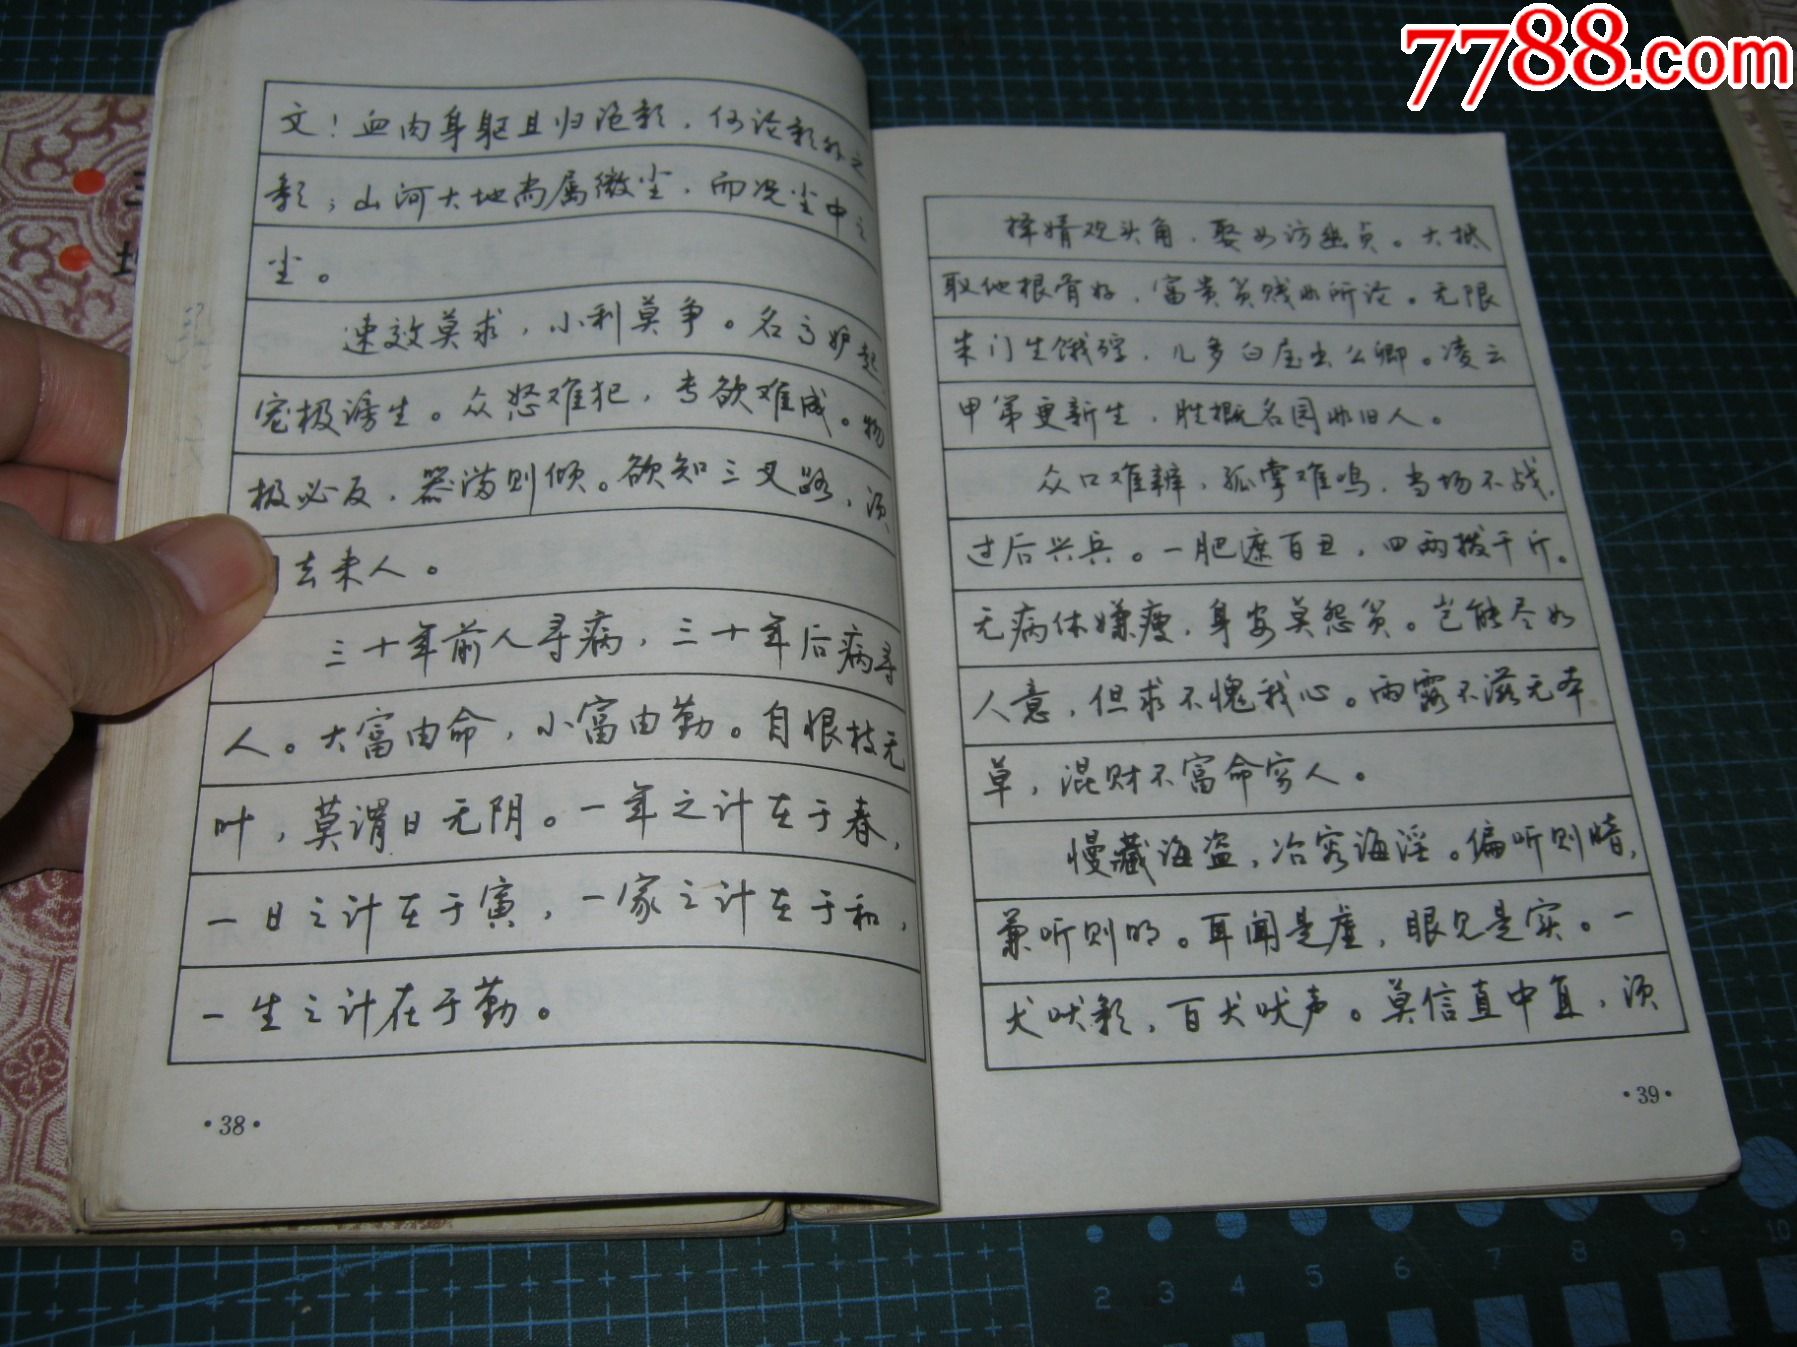 7788.com
文！血肉身躯且归泡影，何论影外之
影；山河大地尚属微尘，而况尘中之
尘。
速效莫求，小利莫争。名高妒起，
宠极谤生。众怒难犯，专欲难成。物
极必反，器满则倾。欲知三叉路，须
去来人。
三十年前人寻病，三十年后病寻
人。大富由命，小富由勤。自恨枝无
叶，莫谓日无阴。一年之计在于春，
一日之计在于寅，一家之计在于和，
一生之计在于勤。
·38·
择婿观头角，娶女访幽贞。大抵
取他根骨好，富贵贫贱非所论。无限
朱门生饿殍，几多白屋出公卿。凌云
甲第更新主，胜概名园非旧人。
众口难辩，孤掌难鸣，当场不战，
过后兴兵。一肥遮百丑，四两拨千斤。
无病休嫌瘦，身安莫怨贫。岂能尽如
人意，但求不愧我心。雨露不滋无本
草，混财不富命穷人。
慢藏海盗，冶容海淫。偏听则暗，
兼听则明。耳闻是虚，眼见是实。一
犬吠影，百犬吠声。莫信直中直，须
·39·
2 3 4 5 6 7 8 9 10